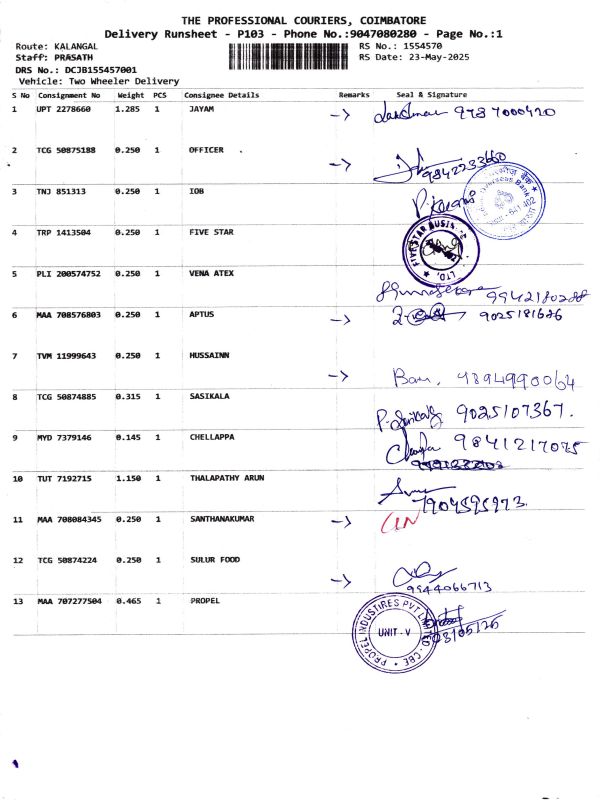 THE PROFESSIONAL COURIERS, COIMBATORE
Delivery Runsheet - P103 - Phone No.:9047080280 - Page No.:1
Route: KALANGAL
RS No.: 1554570
Staff: PRASATH
RS Date: 23-May-2025
DRS No.: DCJB155457001
Vehicle: Two Wheeler Delivery
S No Consignment No Weight PCS Consignee Details Remarks Seal & Signature
1 UPT 2278660 1.285 1 JAYAM -> 9787000420
2 TCG 50875188 0.250 1 OFFICER -> 9842233660
3 TNJ 851313 0.250 1 IOB
4 TRP 1413504 0.250 1 FIVE STAR
FIVE STAR BUSI LTD.,
5 PLI 200574752 0.250 1 VENA ATEX 9942180288
6 MAA 708576803 0.250 1 APTUS -> 9025181686
7 TVM 11999643 0.250 1 HUSSAINN -> 9894990064
8 TCG 50874885 0.315 1 SASIKALA 9025107367.
9 MYD 7379146 0.145 1 CHELLAPPA 9841217075
10 TUT 7192715 1.150 1 THALAPATHY ARUN 7904595973
11 MAA 708084345 0.250 1 SANTHANAKUMAR ->
12 TCG 50874224 0.250 1 SULUR FOOD -> 9544066713
13 MAA 707277504 0.465 1 PROPEL
PROPEL INDUSTIRES PVT LIMITED - CBE
UNIT - V